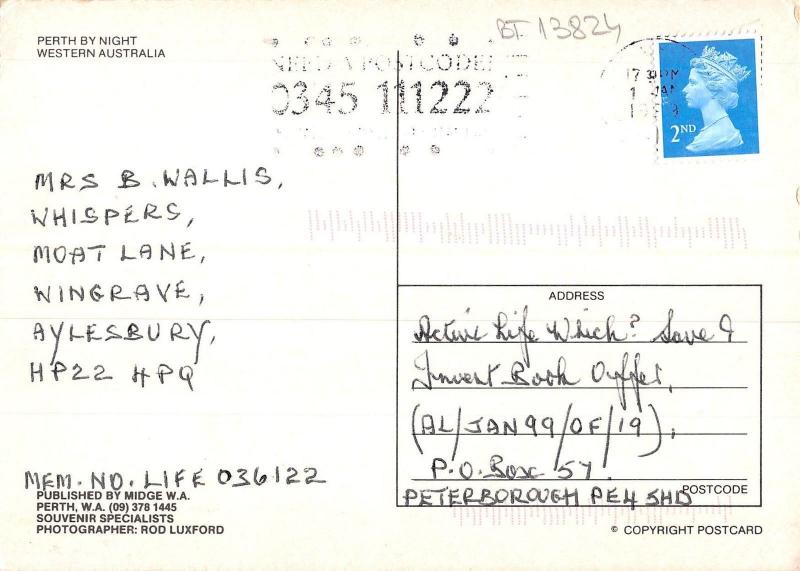 BT 13824
PERTH BY NIGHT
WESTERN AUSTRALIA
NEED A POSTCODE?
0345 111222
2ND
MRS B. WALLIS,
WHISPERS,
MOAT LANE,
WINGRAVE,
AYLESBURY,
HP22 4PQ
MEM. NO. LIFE 036122
PUBLISHED BY MIDGE W.A.
PERTH, W.A. (09) 378 1445
SOUVENIR SPECIALISTS
PHOTOGRAPHER: ROD LUXFORD
ADDRESS
Active Life Which? Save &
Invest Book Offer,
(AL/JAN99/OF/19),
P.O. Box 57.
PETERBOROUGH PE4 5HD
POSTCODE
© COPYRIGHT POSTCARD